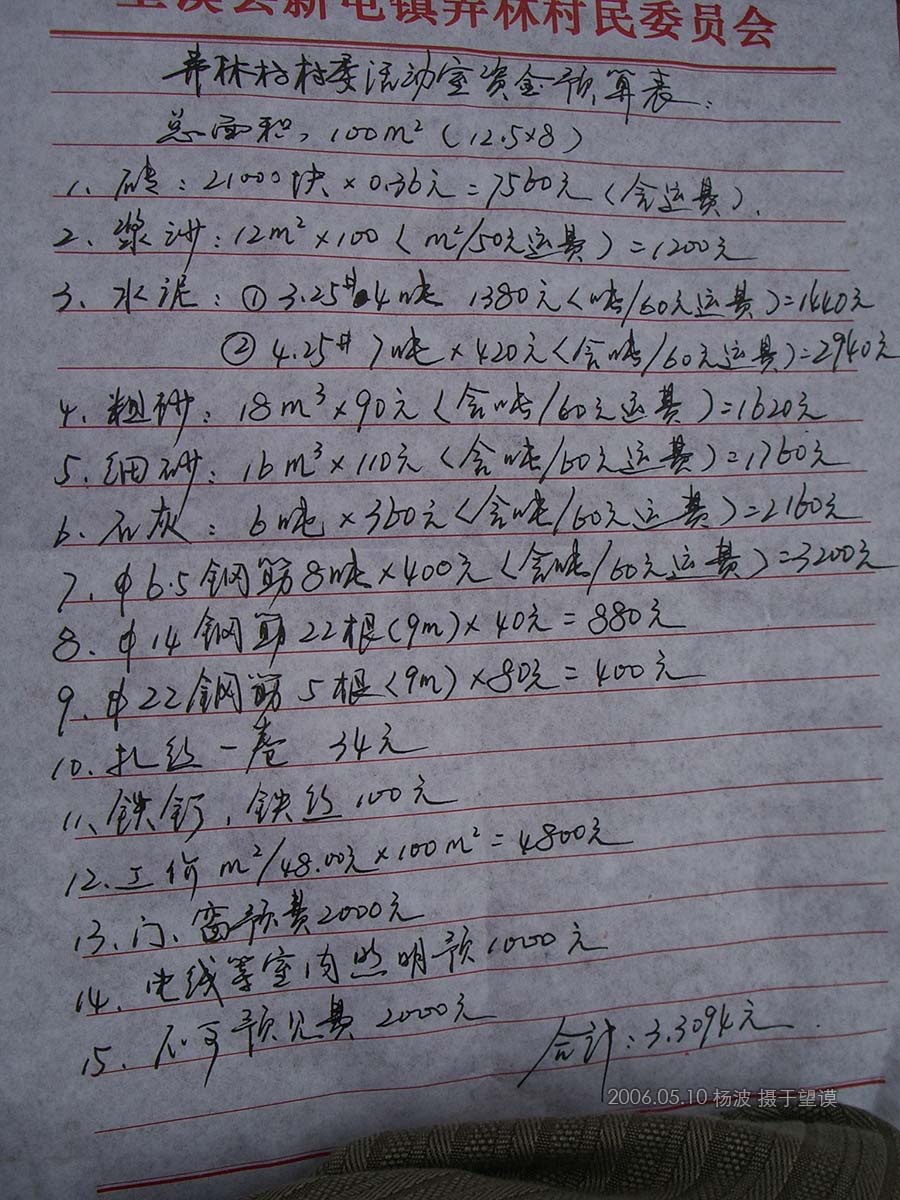 新屯镇弄林村民委员会
弄林村村委活动室资金预算表:
总面积,100m²(12.5×8)
1、砖:21000块×0.36元=7560元(含运费).
2、浆砂:12m²×100(m²/50元运费)=1200元
3、水泥:①3.25# 4吨 1380元(吨/60元运费)=1440元
②4.25# 7吨×420元(含吨/60元运费)=2940元
4.粗砂:18m³×90元(含吨/60元运费)=1620元
5.细砂:16m³×110元(含吨/60元运费)=1760元
6.石灰:6吨×360元(含吨/60元运费)=2160元
7.φ6.5钢筋8吨×400元(含吨/60元运费)=3200元
8.φ14钢筋22根(9m)×40元=880元
9.φ22钢筋5根(9m)×80元=400元
10.扎丝一卷 34元
11、铁钉,铁丝100元
12.工价m²/48.00元×100m²=4800元
13、门、窗预费2000元
14.电线等室内照明预1000元
15、不可预见费 2000元
合计:3.3094元.
2006.05.10 杨波 摄于望谟